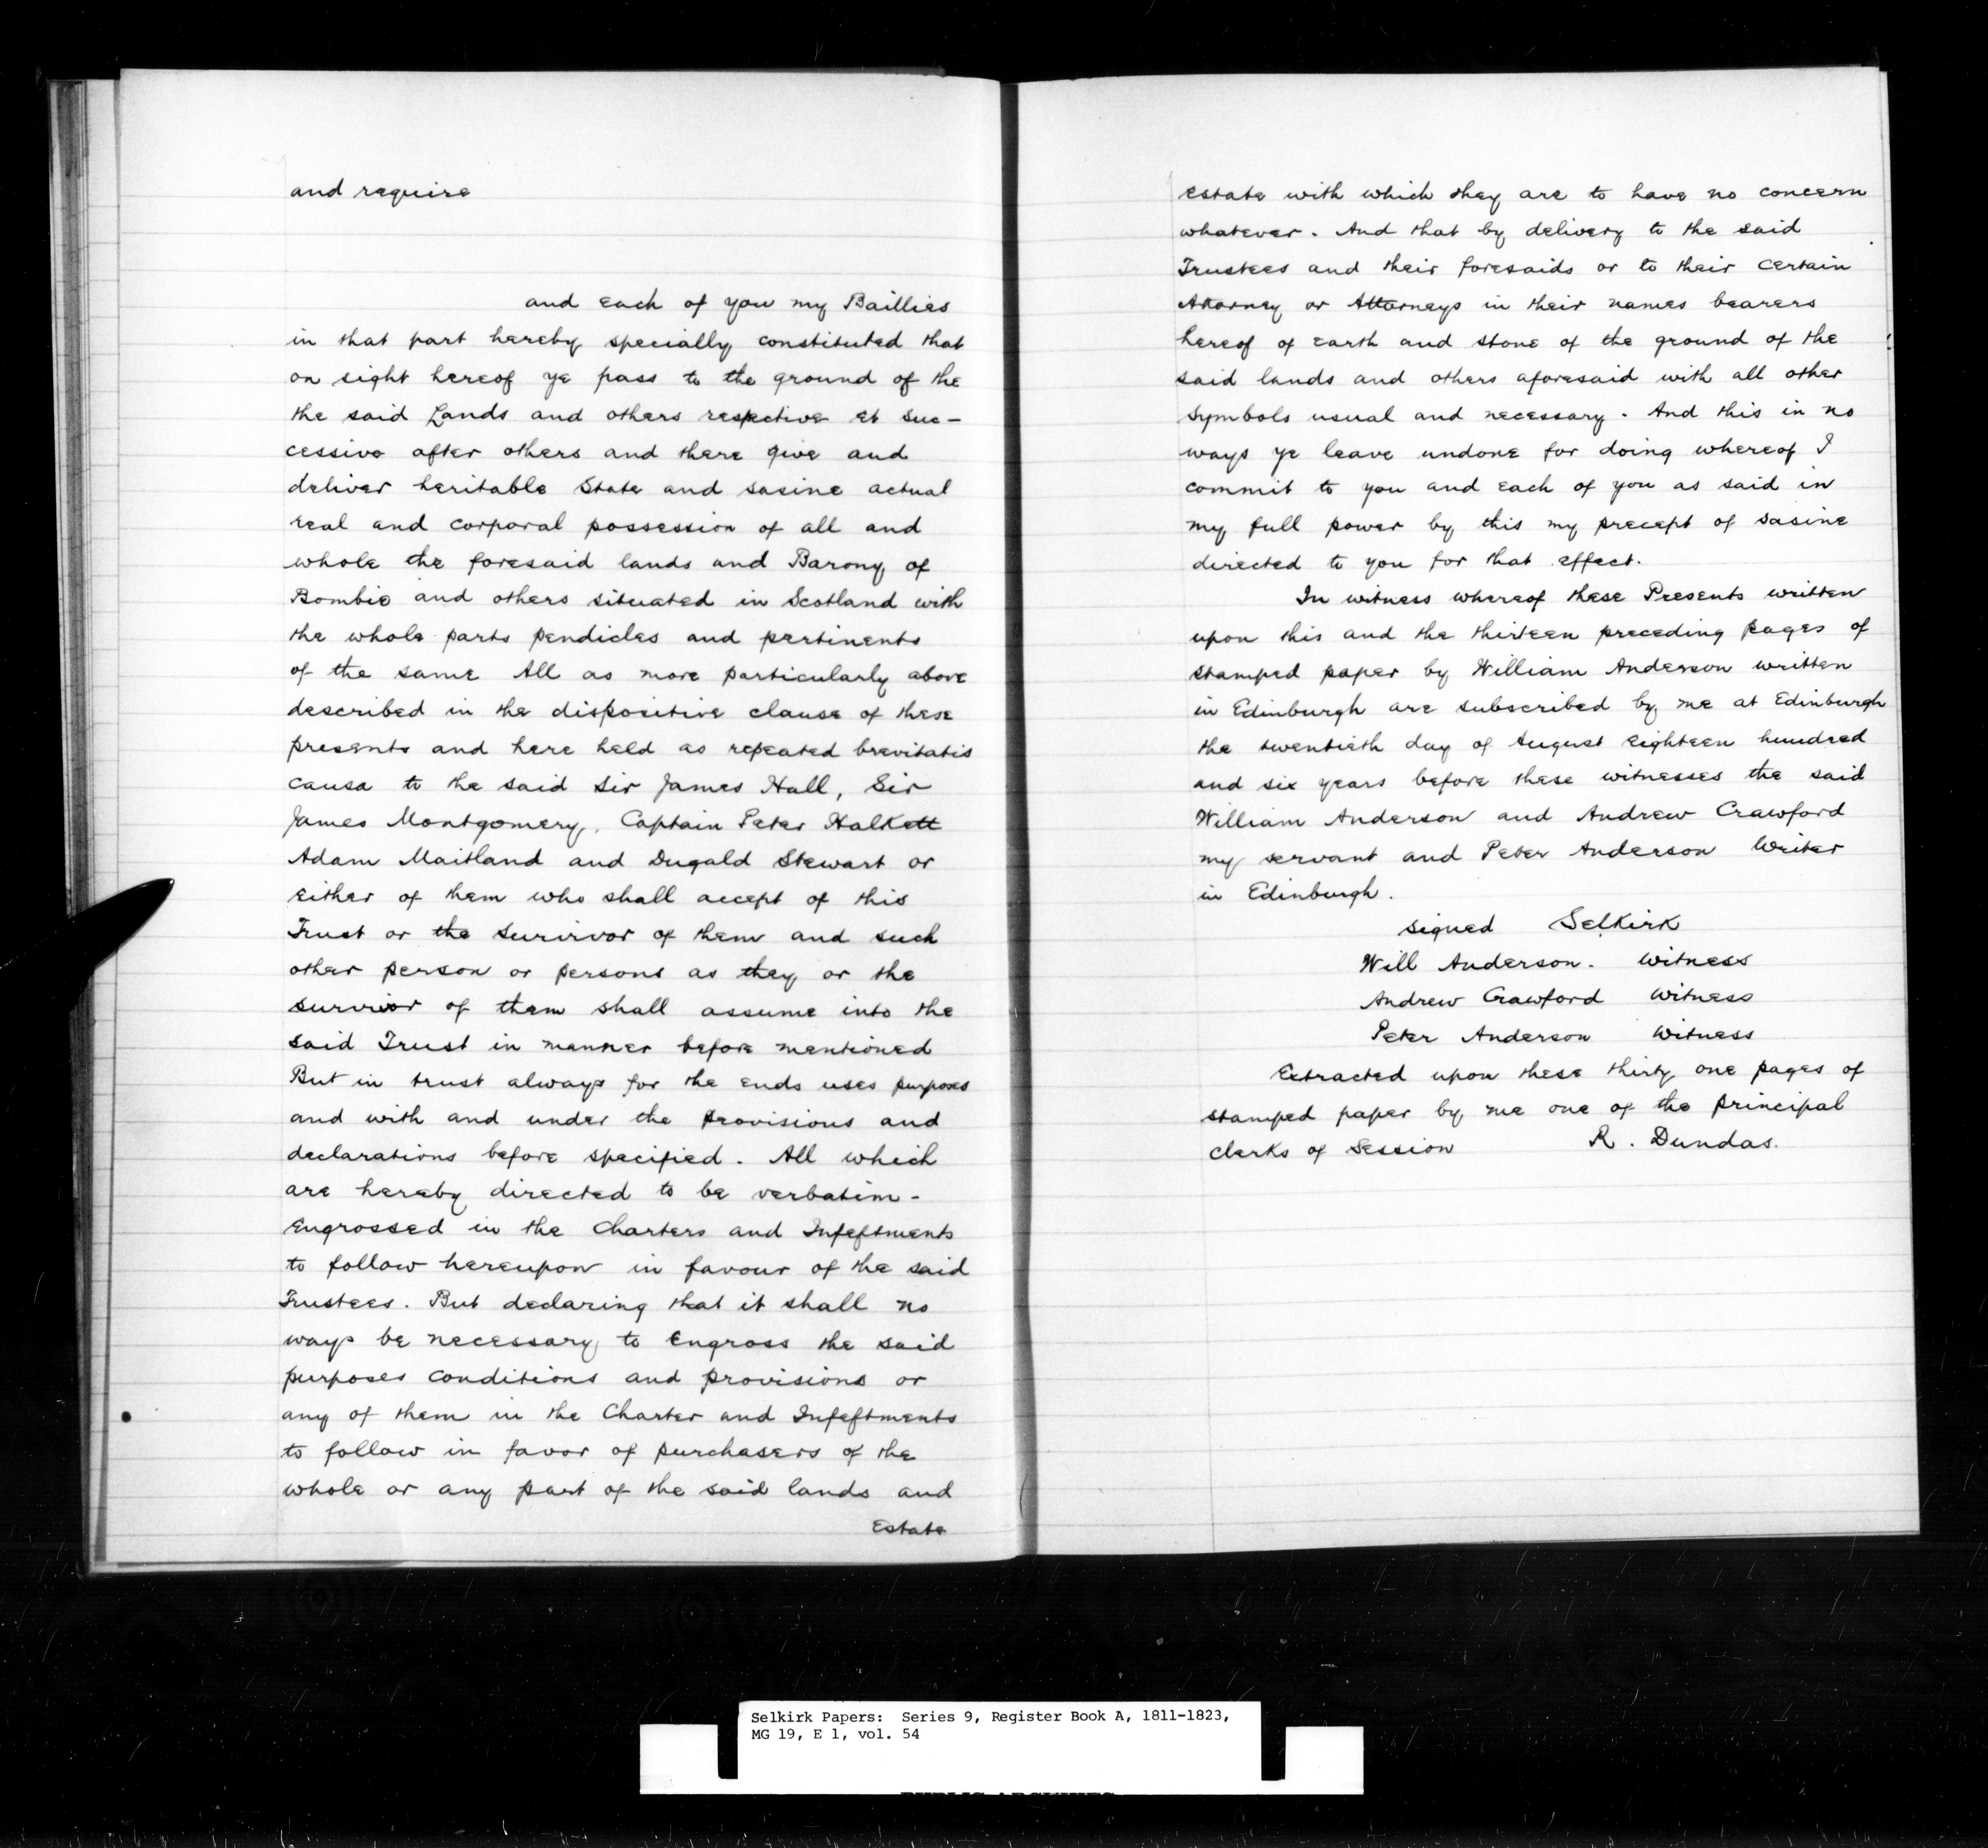 and require
and each of you my Baillies
in that part hereby specially constituted that
on sight hereof ye pass to the ground of the
the said Lands and others respective et suc-
cessive after others and there give and
deliver heritable State and sasine actual
real and corporal possession of all and
whole the foresaid lands and Barony of
Bombie and others situated in Scotland with
the whole parts pendicles and pertinents
of the same All as more particularly above
described in the dispositive clause of these
presents and here held as repeated brevitatis
causa to the said Sir James Hall, Sir
James Montgomery, Captain Peter Halkett
Adam Maitland and Dugald Stewart or
either of them who shall accept of this
Trust or the survivor of them and such
other person or persons as they or the
survivor of them shall assume into the
said Trust in manner before mentioned
But in trust always for the ends uses purposes
and with and under the provisions and
declarations before specified. All which
are hereby directed to be verbatim-
Engrossed in the Charters and Infeftments
to follow hereupon in favour of the said
Trustees. But declaring that it shall no
ways be necessary to Engross the said
purposes conditions and provisions or
any of them in the Charter and Infeftments
to follow in favor of purchasers of the
whole or any part of the said lands and
Estate
Estate with which they are to have no concern
whatever. And that by delivery to the said
Trustees and their foresaids or to their certain
Attorney or Attorneys in their names bearers
hereof of Earth and stone of the ground of the
said lands and others aforesaid with all other
symbols usual and necessary. And this in no
ways ye leave undone for doing whereof I
commit to you and Each of you as said in
my full power by this my precept of sasine
directed to you for that effect.
In witness whereof these Presents written
upon this and the thirteen preceding pages of
stamped paper by William Anderson written
in Edinburgh are subscribed by me at Edinburgh
the twentieth day of August Eighteen hundred
and six years before these witnesses the said
William Anderson and Andrew Crawford
my servant and Peter Anderson Writer
in Edinburgh.
signed Selkirk
Will Anderson. Witness
Andrew Crawford Witness
Peter Anderson Witness
Extracted upon these thirty one pages of
stamped paper by me one of the principal
clerks of Session R. Dundas.
Selkirk Papers: Series 9, Register Book A, 1811-1823,
MG 19, E 1, vol. 54